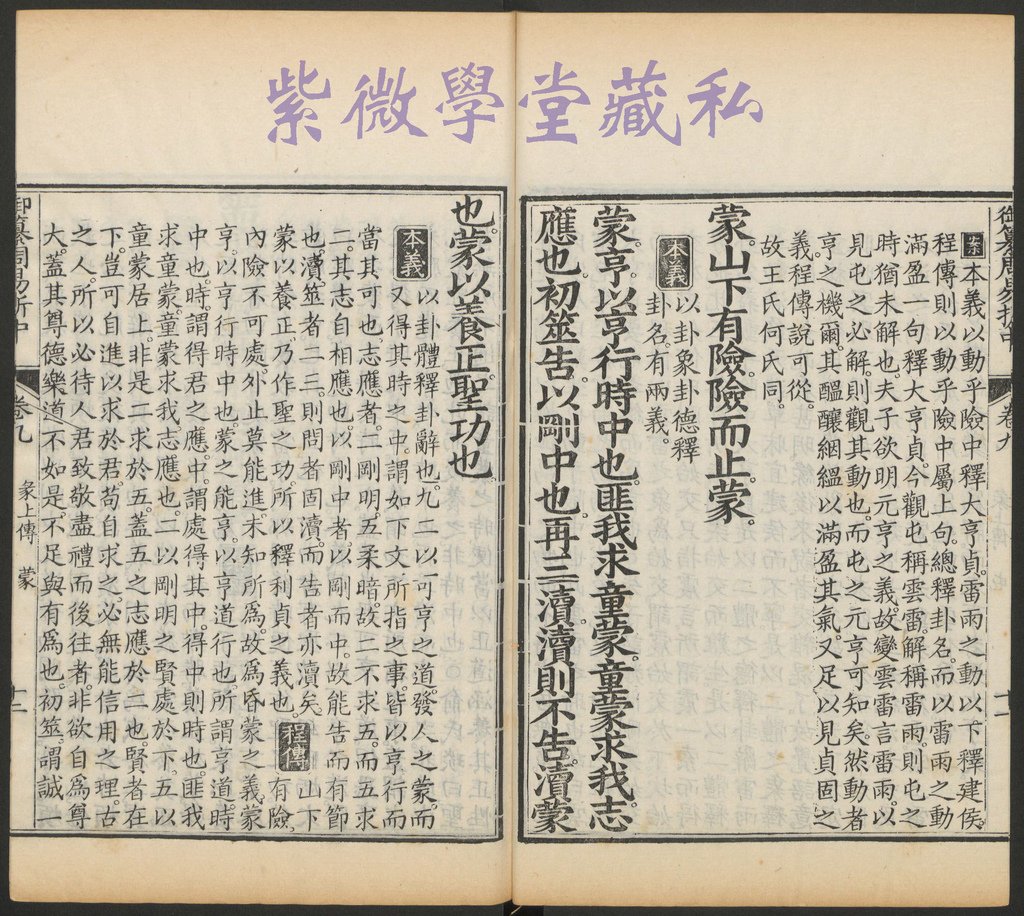 紫微學堂藏私
御纂周易折中 卷九 十一
案本義以動乎險中釋大亨貞。雷雨之動以下釋建侯。
程傳則以動乎險中屬上句。總釋卦名。而以雷雨之動
滿盈一句釋大亨貞。今觀屯稱雲雷。解稱雷雨。則屯之
時猶未解也。夫子欲明元亨之義。故變雲雷言雷雨。以
見屯之必解。則觀其動也。而屯之元亨可知矣。然動者
亨之機爾。其醞釀絪縕以滿盈其氣。又足以見貞固之
義。程傳說可從。
故王氏何氏同。
蒙。山下有險。險而止。蒙。
本義以卦象卦德釋
卦名。有兩義。
蒙。亨。以亨行時中也。匪我求童蒙。童蒙求我。志
應也。初筮告。以剛中也。再三瀆。瀆則不告。瀆蒙
也。蒙以養正。聖功也。
本義以卦體釋卦辭也。九二以可亨之道。發人之蒙。而
又得其時之中。謂如下文所指之事。皆以亨行而
當其可也。志應者。二剛明。五柔暗。故二不求五。而五求
二。其志自相應也。以剛中者。以剛而中。故能告而有節
也。瀆。筮者二三。則問者固瀆。而告者亦瀆矣。
蒙以養正。乃作聖之功。所以釋利貞之義也。程傳山下有險。
內險不可處。外止莫能進。未知所爲。故爲昏蒙之義。蒙
亨。以亨行時中也。蒙之能亨。以亨道行也。所謂亨道。時
中也。時謂得君之應。中謂處得其中。得中則時也。匪我
求童蒙。童蒙求我。志應也。二以剛明之賢處於下。五以
童蒙居上。非是二求於五。蓋五之志應於二也。賢者在
下。豈可自進以求於君。苟自求之。必無能信用之理。古
之人。所以必待人君致敬盡禮而後往者。非欲自爲尊
大。蓋其尊德樂道。不如是。不足與有爲也。初筮。謂誠一
御纂周易折中 卷九 彖上傳 蒙 十二